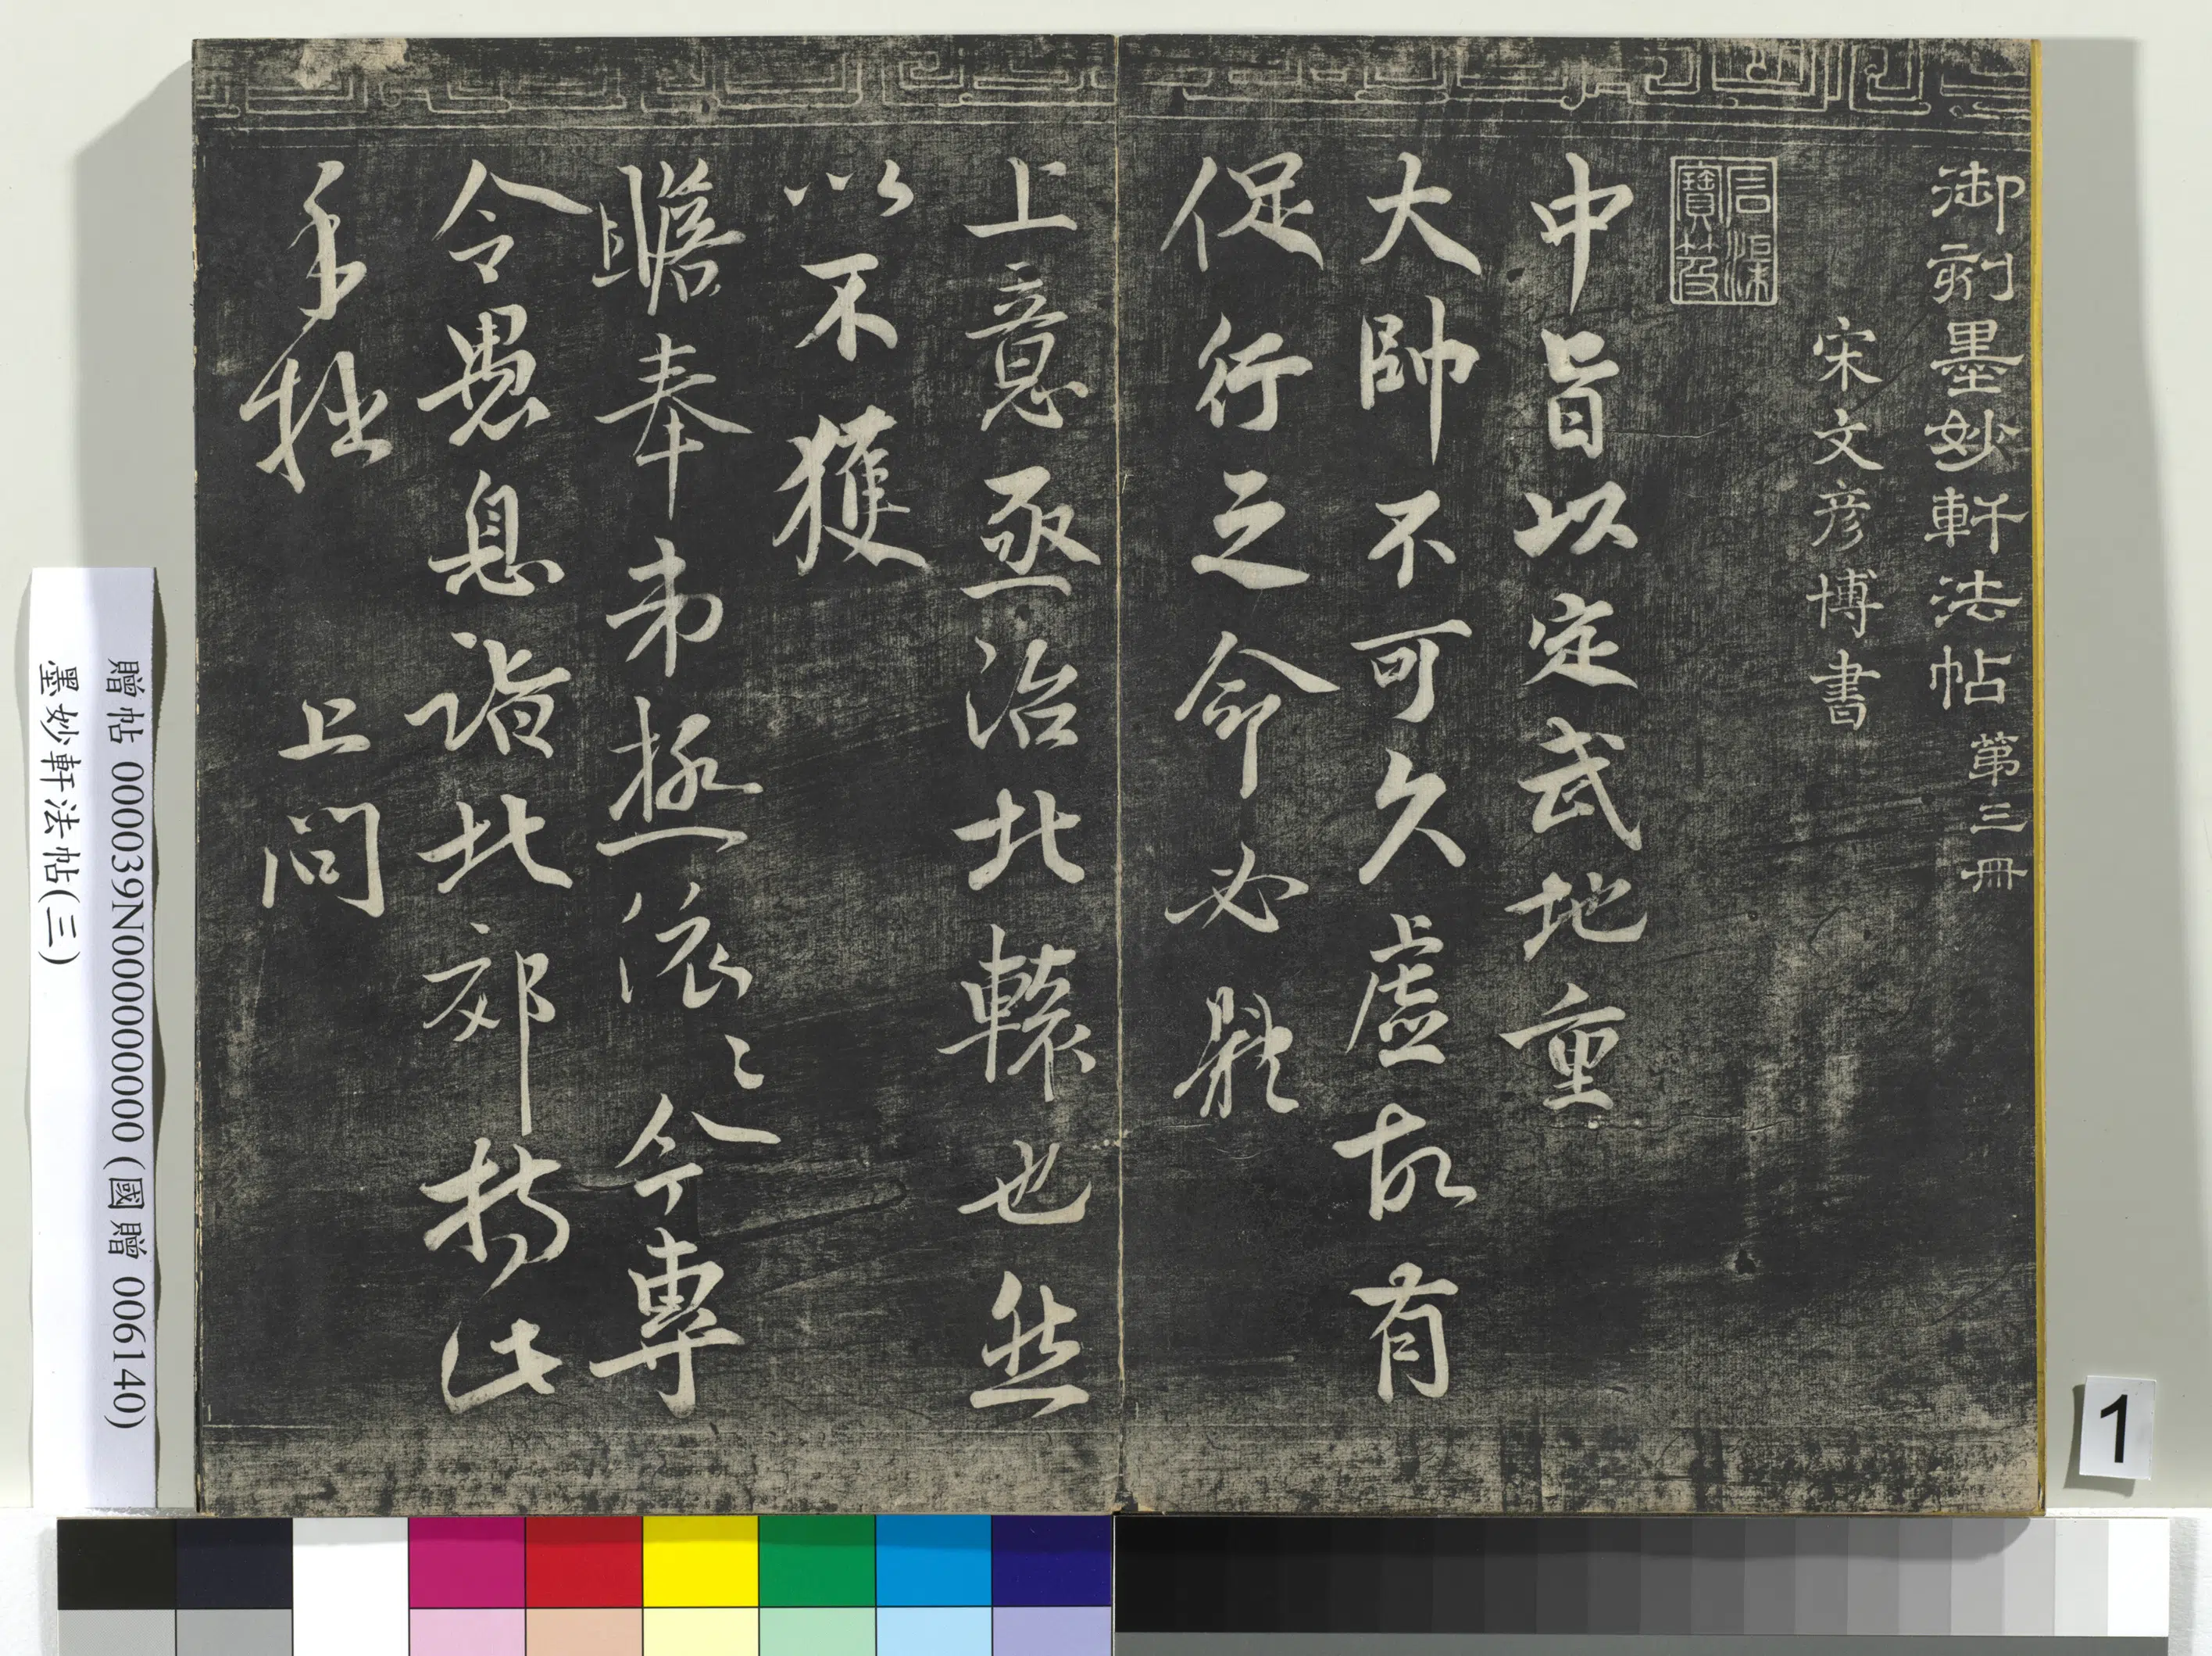 御刻墨妙軒法帖 第三冊
宋文彦博書
石渠寶笈
中旨以定武地重
大帥不可久虛故有
促行之命必疑
上意亟治北轅也然
以不獲
瞻奉弟極依〻今專
令愚息詣北郊特此
手狀
上問
贈帖 000039N000000000 (國贈 006140)
墨妙軒法帖(三)
1